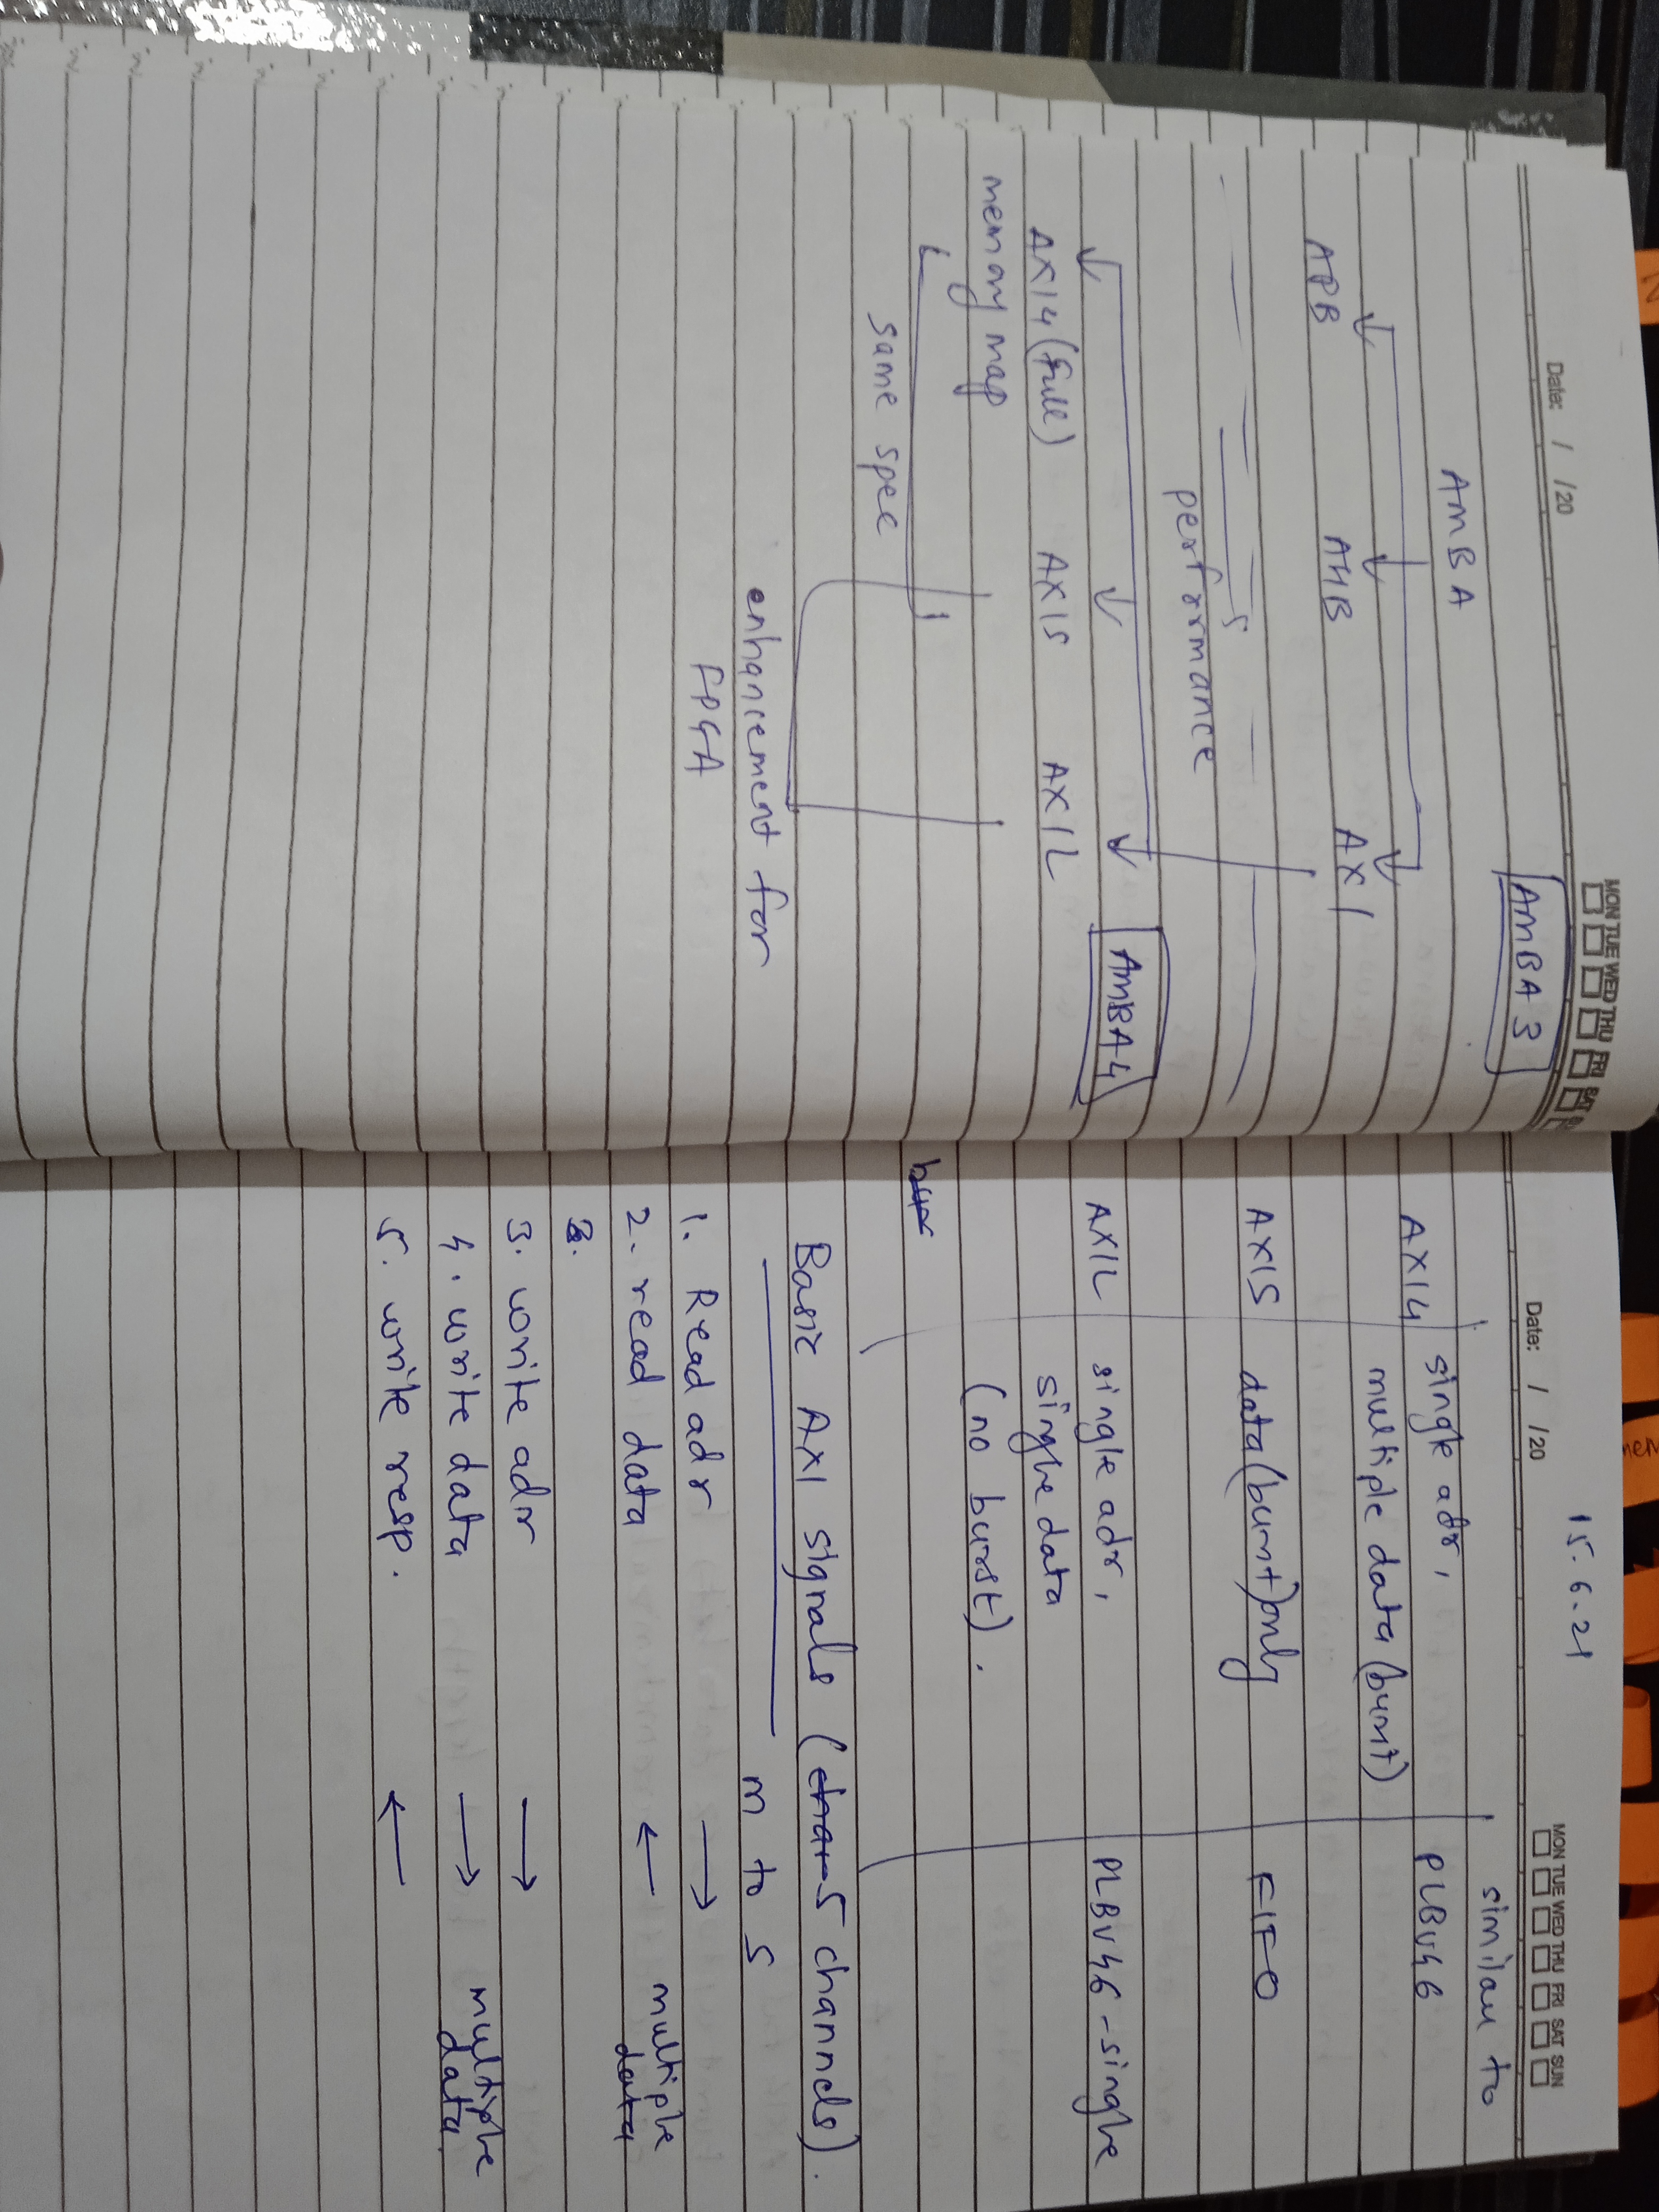 MON TUE WED THU FRI SAT
Date: / /20
AMBA 3
AMBA
APB AHB AXI
performance
AMBA4
AXI4 (full) AXIS AXIL
memory map
same spec
enhancement for
FPGA
15.6.21
MON TUE WED THU FRI SAT SUN
Date: / /20
similar to
AXI4 single adr, PLBv46
multiple data (burst)
AXIS data (burst) only FIFO
AXIL single adr, PLBv46-single
single data
(no burst).
Basic AXI signals (5 channels).
m to S
1. Read adr →
2. read data ← multiple
data
3. write adr →
4. write data → multiple
data
5. write resp. ←